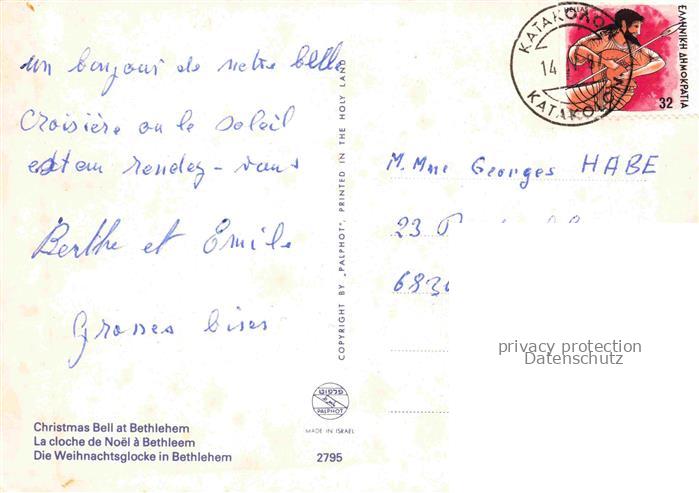 un bonjour de notre belle
Croisière ou le soleil
est au rendez-vous
Berthe et Emile
Grosses bises
Christmas Bell at Bethlehem
La cloche de Noël à Bethleem
Die Weihnachtsglocke in Bethlehem
2795
פלפוט
PALPHOT
MADE IN ISRAEL
COPYRIGHT BY „PALPHOT", PRINTED IN THE HOLY LAND
ΚΑΤΑΚΟΛΟ
14
KATAKOLON
HELLAS
ΕΛΛΗΝΙΚΗ ΔΗΜΟΚΡΑΤΙΑ
32
M. Mme Georges HABE
23
privacy protection
Datenschutz